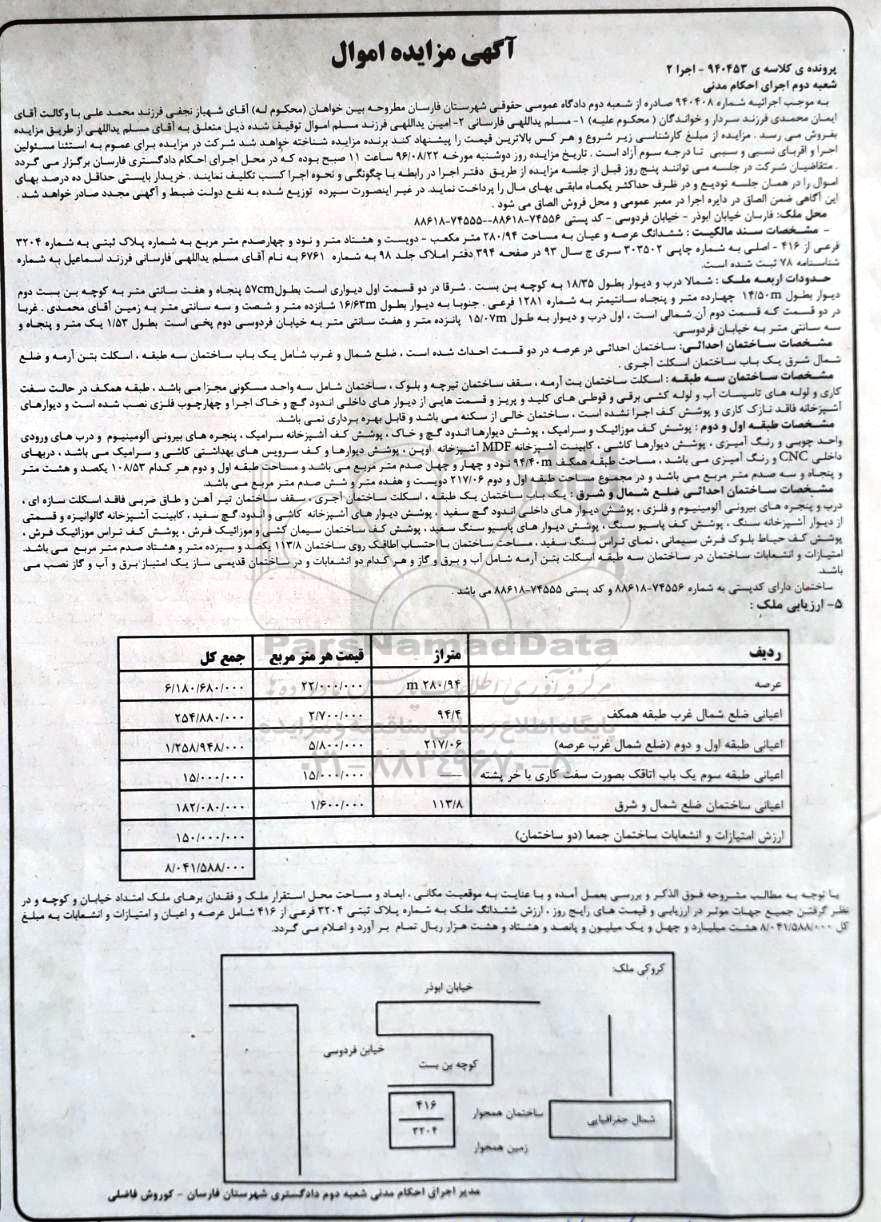 آگهی مزایده اموال
پرونده ی کلاسه ی ۹۴۰۴۵۳ - اجرا ۲
شعبه دوم اجرای احکام مدنی
به موجب اجرائیه شماره ۹۴۰۴۰۸ صادره از شعبه دوم دادگاه عمومی حقوقی شهرستان فارسان مطروحه بین خواهان (محکوم له) آقای شهباز نجفی فرزند محمد علی با وکالت آقای
ایمان محمدی فرزند سردار و خواندگان ( محکوم علیه) ۱- مسلم یداللهی فارسانی ۲- امین یداللهی فرزند مسلم اموال توقیف شده ذیل متعلق به آقای مسلم یداللهی از طریق مزایده
بفروش می رسد . مزایده از مبلغ کارشناسی زیر شروع و هر کس بالاترین قیمت را پیشنهاد کند برنده مزایده شناخته خواهد شد شرکت در مزایده برای عموم به استثنا مسئولین
اجرا و اقربای نسبی و سببی تا درجه سوم آزاد است . تاریخ مزایده روز دوشنبه مورخه ۹۶/۰۸/۲۲ ساعت ۱۱ صبح بوده که در محل اجرای احکام دادگستری فارسان برگزار می گردد
. متقاضیان شرکت در جلسه می توانند پنج روز قبل از جلسه مزایده از طریق دفتر اجرا در رابطه با چگونگی و نحوه اجرا کسب تکلیف نمایند . خریدار بایستی حداقل ده درصد بهای
اموال را در همان جلسه تودیع و در ظرف حداکثر یکماه مابقی بهای مال را پرداخت نماید. در غیر اینصورت سپرده توزیع شده به نفع دولت ضبط و آگهی مجدد صادر خواهد شد .
این آگاهی ضمن الصاق در دایره اجرا در معبر عمومی و محل فروش الصاق می شود .
محل ملک: فارسان خیابان ابوذر - خیابان فردوسی - کد پستی ۷۴۵۵۶-۸۸۶۱۸--۷۴۵۵۵-۸۸۶۱۸
- مشخصات سند مالکیت : ششدانگ عرصه و عیان به مساحت ۲۸۰/۹۴ متر مکعب - دویست و هشتاد متر و نود و چهارصدم متر مربع به شماره پلاک ثبتی به شماره ۳۲۰۴
فرعی از ۴۱۶ - اصلی به شماره چاپی ۳۰۳۵۰۲ سری ج سال ۹۳ در صفحه ۳۹۴ دفتر املاک جلد ۹۸ به شماره ۶۷۶۱ به نام آقای مسلم یداللهی فارسانی فرزند اسماعیل به شماره
شناسنامه ۷۸ ثبت شده است.
حدودات اربعه ملک : شمالا درب و دیوار بطول ۱۸/۳۵ به کوچه بن بست . شرقا در دو قسمت اول دیواری است بطول ۵۷cm پنجاه و هفت سانتی متر به کوچه بن بست دوم
دیوار بطول ۱۴/۵۰m چهارده متر و پنجاه سانتیمتر به شماره ۱۲۸۱ فرعی . جنوبا به دیوار بطول ۱۶/۶۳m شانزده متر و شصت و سه سانتی متر به زمین آقای محمدی . غربا
در دو قسمت که قسمت دوم آن شمالی است ، اول درب و دیوار به طول ۱۵/۰۷m پانزده متر و هفت سانتی متر به خیابان فردوسی دوم پخی است بطول ۱/۵۳ یک متر و پنجاه و
سه سانتی متر به خیابان فردوسی.
مشخصات ساختمان احداثی: ساختمان احداثی در عرصه در دو قسمت احداث شده است ، ضلع شمال و غرب شامل یک باب ساختمان سه طبقه ، اسکلت بتن آرمه و ضلع
شمال شرق یک باب ساختمان اسکلت آجری .
مشخصات ساختمان سه طبقه : اسکلت ساختمان بت آرمه ، سقف ساختمان تیرچه و بلوک ، ساختمان شامل سه واحد مسکونی مجزا می باشد ، طبقه همکف در حالت سفت
کاری و لوله های تاسیسات آب و لوله کشی برقی و قوطی های کلید و پریز و قسمت هایی از دیوار های داخلی اندود گچ و خاک اجرا و چهارچوب فلزی نصب شده است و دیوارهای
آشپزخانه فاقد نازک کاری و پوشش کف اجرا نشده است ، ساختمان خالی از سکنه می باشد و قابل بهره برداری نمی باشد.
مشخصات طبقه اول و دوم : پوشش کف موزائیک و سرامیک ، پوشش دیوارها اندود گچ و خاک ، پوشش کف آشپزخانه سرامیک ، پنجره های بیرونی آلومینیوم و درب های ورودی
واحد چوبی و رنگ آمیزی ، پوشش دیوارها کاشی ، کابینت آشپزخانه MDF آشپزخانه اوپن ، پوشش دیوارها و کف سرویس های بهداشتی کاشی و سرامیک می باشد ، دربهای
داخلی CNC و رنگ آمیزی می باشد ، مساحت طبقه همکف ۹۴/۴۰m نود و چهار و چهل صدم متر مربع می باشد و مساحت طبقه اول و دوم هر کدام ۱۰۸/۵۳ یکصد و هشت متر
و پنجاه و سه صدم متر مربع می باشد و در مجموع مساحت طبقه اول و دوم ۲۱۷/۰۶ دویست و هفده متر و شش صدم متر مربع می باشد.
مشخصات ساختمان احداثی ضلع شمال و شرق : یک باب ساختمان یک طبقه ، اسکلت ساختمان آجری ، سقف ساختمان تیر آهن و طاق ضربی فاقد اسکلت سازه ای ،
درب و پنجره های بیرونی آلومینیوم و فلزی ، پوشش دیوار های داخلی اندود گچ سفید ، پوشش دیوار های آشپزخانه کاشی و اندود گچ سفید ، کابینت آشپزخانه گالوانیزه و قسمتی
از دیوار آشپزخانه سنگ ، پوشش کف پاسیو سنگ ، پوشش دیوار های پاسیو سنگ سفید ، پوشش کف ساختمان سیمان کشی و موزائیک فرش ، پوشش کف تراس موزائیک فرش ،
پوشش کف حیاط بلوک فرش سیمانی ، نمای تراس سنگ سفید ، مساحت ساختمان با احتساب اطاقک روی ساختمان ۱۱۳/۸ یکصد و سیزده متر و هشتاد صدم متر مربع می باشد.
امتیازات و انشعابات ساختمان در ساختمان سه طبقه اسکلت بتن آرمه شامل آب و برق و گاز و هر کدام دو انشعابات و در ساختمان قدیمی ساز یک امتیاز برق و آب و گاز نصب می
باشد.
ساختمان دارای کدپستی به شماره ۷۴۵۵۶-۸۸۶۱۸ و کد پستی ۷۴۵۵۵-۸۸۶۱۸ می باشد .
۵- ارزیابی ملک :
ردیف متراژ قیمت هر متر مربع جمع کل
عرصه ۲۸۰/۹۴ m ۲۲/۰۰۰/۰۰۰ ۶/۱۸۰/۶۸۰/۰۰۰
اعیانی ضلع شمال غرب طبقه همکف ۹۴/۴ ۲/۷۰۰/۰۰۰ ۲۵۴/۸۸۰/۰۰۰
اعیانی طبقه اول و دوم (ضلع شمال غرب عرصه) ۲۱۷/۰۶ ۵/۸۰۰/۰۰۰ ۱/۲۵۸/۹۴۸/۰۰۰
اعیانی طبقه سوم یک باب اتاقک بصورت سفت کاری با خر پشته — ۱۵/۰۰۰/۰۰۰ ۱۵/۰۰۰/۰۰۰
اعیانی ساختمان ضلع شمال و شرق ۱۱۳/۸ ۱/۶۰۰/۰۰۰ ۱۸۲/۰۸۰/۰۰۰
ارزش امتیازات و انشعابات ساختمان جمعا (دو ساختمان) ۱۵۰/۰۰۰/۰۰۰
۸/۰۴۱/۵۸۸/۰۰۰
ParsNamadData
پایگاه اطلاع رسانی مناقصه و مزایده
۰۲۱-۸۸۳۴۹۶۷۰-۵
با توجه به مطالب مشروحه فوق الذکر و بررسی بعمل آمده و با عنایت به موقعیت مکانی ، ابعاد و مساحت محل استقرار ملک و فقدان برهای ملک امتداد خیابان و کوچه و در
نظر گرفتن جمیع جهات موثر در ارزیابی و قیمت های رایج روز ، ارزش ششدانگ ملک به شماره پلاک ثبتی ۳۲۰۴ فرعی از ۴۱۶ شامل عرصه و اعیان و امتیازات و انشعابات به مبلغ
کل ۸/۰۴۱/۵۸۸/۰۰۰ هشت میلیارد و چهل و یک میلیون و پانصد و هشتاد و هشت هزار ریال تمام بر آورد و اعلام می گردد.
کروکی ملک:
خیابان ابوذر
خیابن فردوسی
کوچه بن بست
۴۱۶
۳۲۰۴
ساختمان همجوار
زمین همجوار
شمال جغرافیایی
مدیر اجرای احکام مدنی شعبه دوم دادگستری شهرستان فارسان - کوروش فاضلی